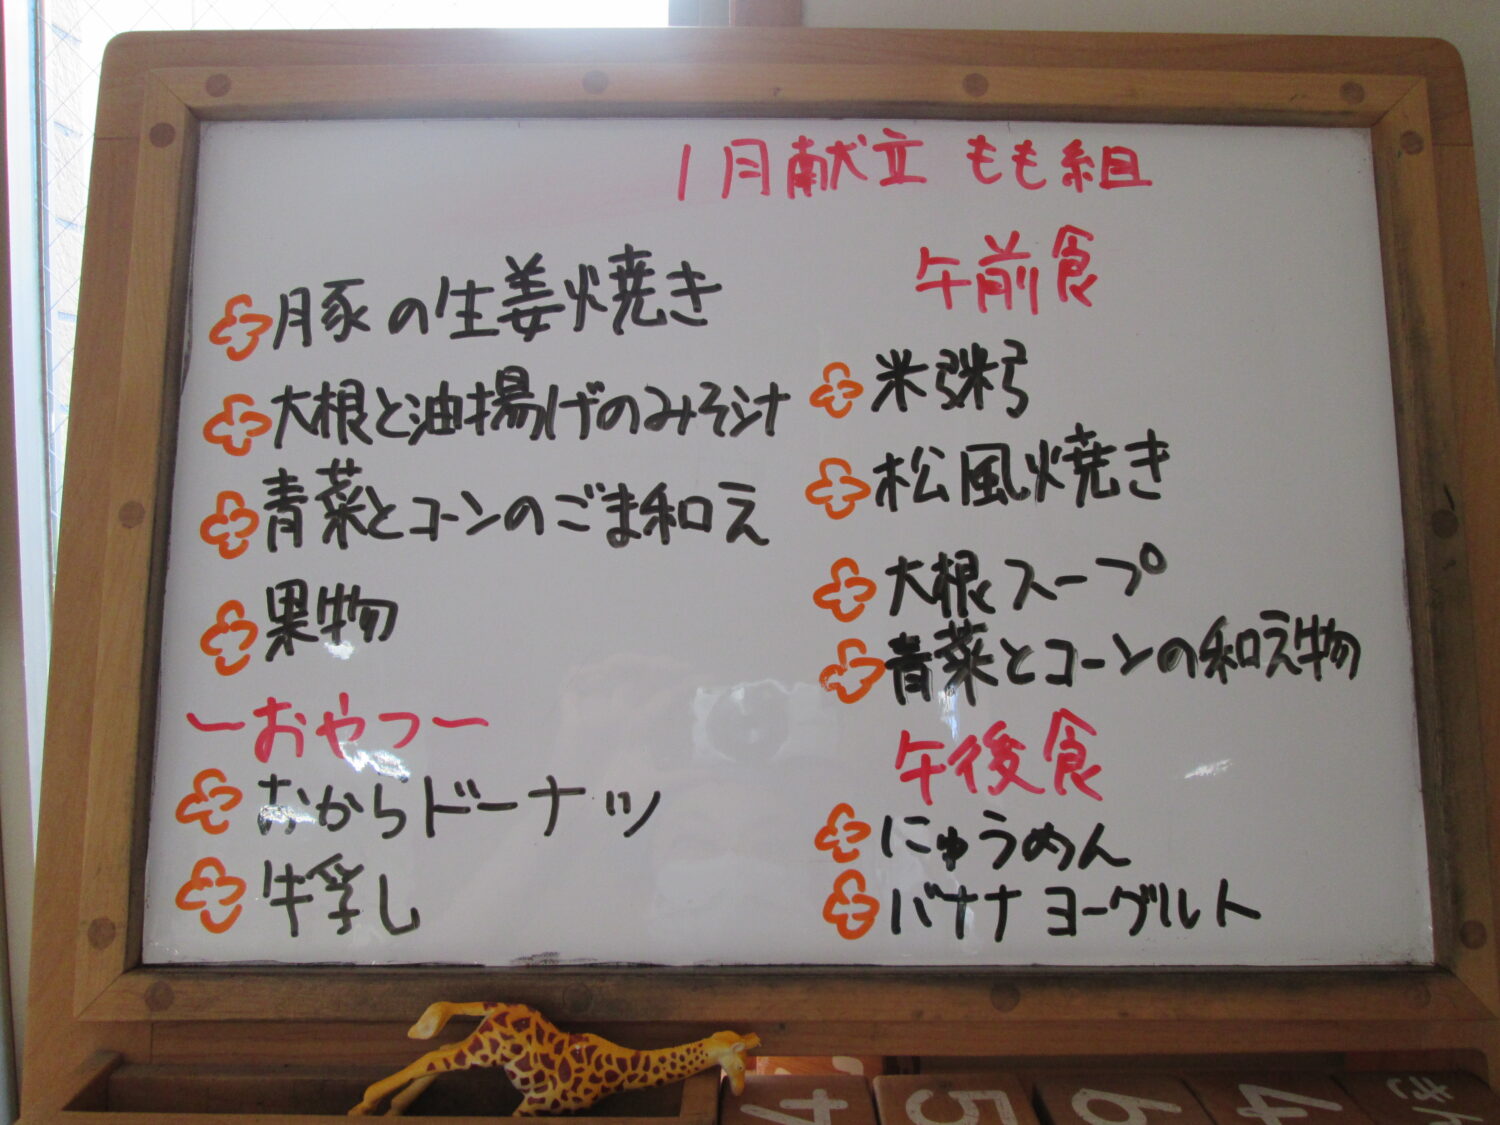 1月献立 もも組
豚の生姜焼き
大根と油揚げのみそ汁
青菜とコーンのごま和え
果物
ーおやつー
おからドーナツ
牛乳し
午前食
米粥
松風焼き
大根スープ
青菜とコーンの和え物
午後食
にゅうめん
バナナヨーグルト
5
6
4
きん